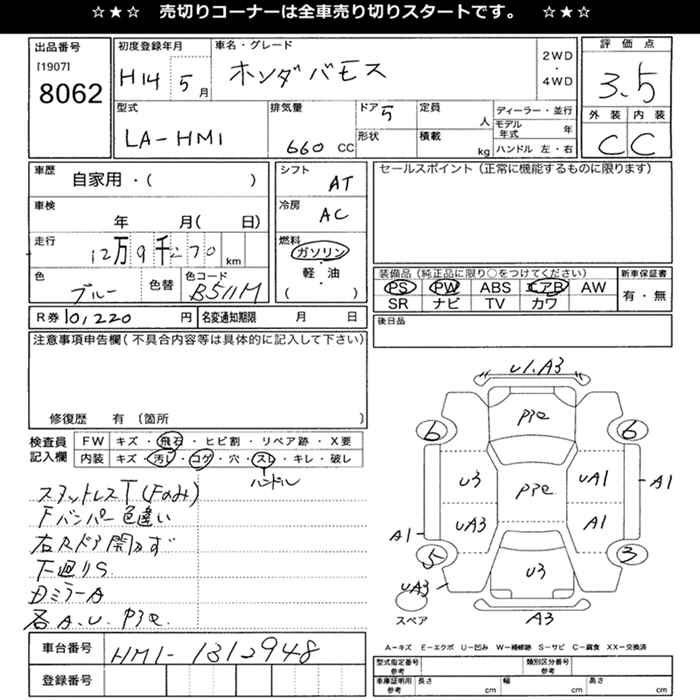 ☆★☆ 売切りコーナーは全車売り切りスタートです。 ☆★☆
出品番号 初度登録年月 車名・グレード 2WD・4WD 評価点
[1907] 8062 H14 5月 ホンダバモス 3.5
型式 排気量 ドア 5 定員 人 ディーラー・並行 外装 内装
LA-HM1 660 CC 形状 積載 kg モデル年式 年 C C
ハンドル 左・右
車歴 自家用・( ) シフト AT セールスポイント(正常に機能するものに限ります)
車検 年 月( 日) 冷房 AC
走行 12万9千270 km 燃料 ガソリン・軽油
( )
色 ブルー 色替 色コード B511M
装備品(純正品に限り○をつけてください) 新車保証書
PS PW ABS エアB AW 有・無
SR ナビ TV カワ
R券 10,220 円 名変通知期限 月 日 後日品
注意事項申告欄(不具合内容等は具体的に記入して下さい)
修復歴 有(箇所 )
検査員記入欄 FW キズ・飛石・ヒビ割・リペア跡・X要
内装 キズ・汚レ・コゲ・穴・スレ・キレ・破レ
ハンドル
スタットレスT(Fのみ)
Fバンパー色違い
右Rドア開カず
下廻りS
DミラーA
各A.U.P1e.
U1.A3
P1e
6 6
U3 P1e UA1 A1
A1 UA3 A1
5 3
U3
UA3
スペア A3
A-キズ E-エクボ U-凹み W-補修跡 S-サビ C-腐食 XX-交換済
車台番号 HM1-1312948
登録番号
型式指定番号 参考 類別区分番号 参考
車庫証明用 参考 長さ cm 幅 cm 高さ cm